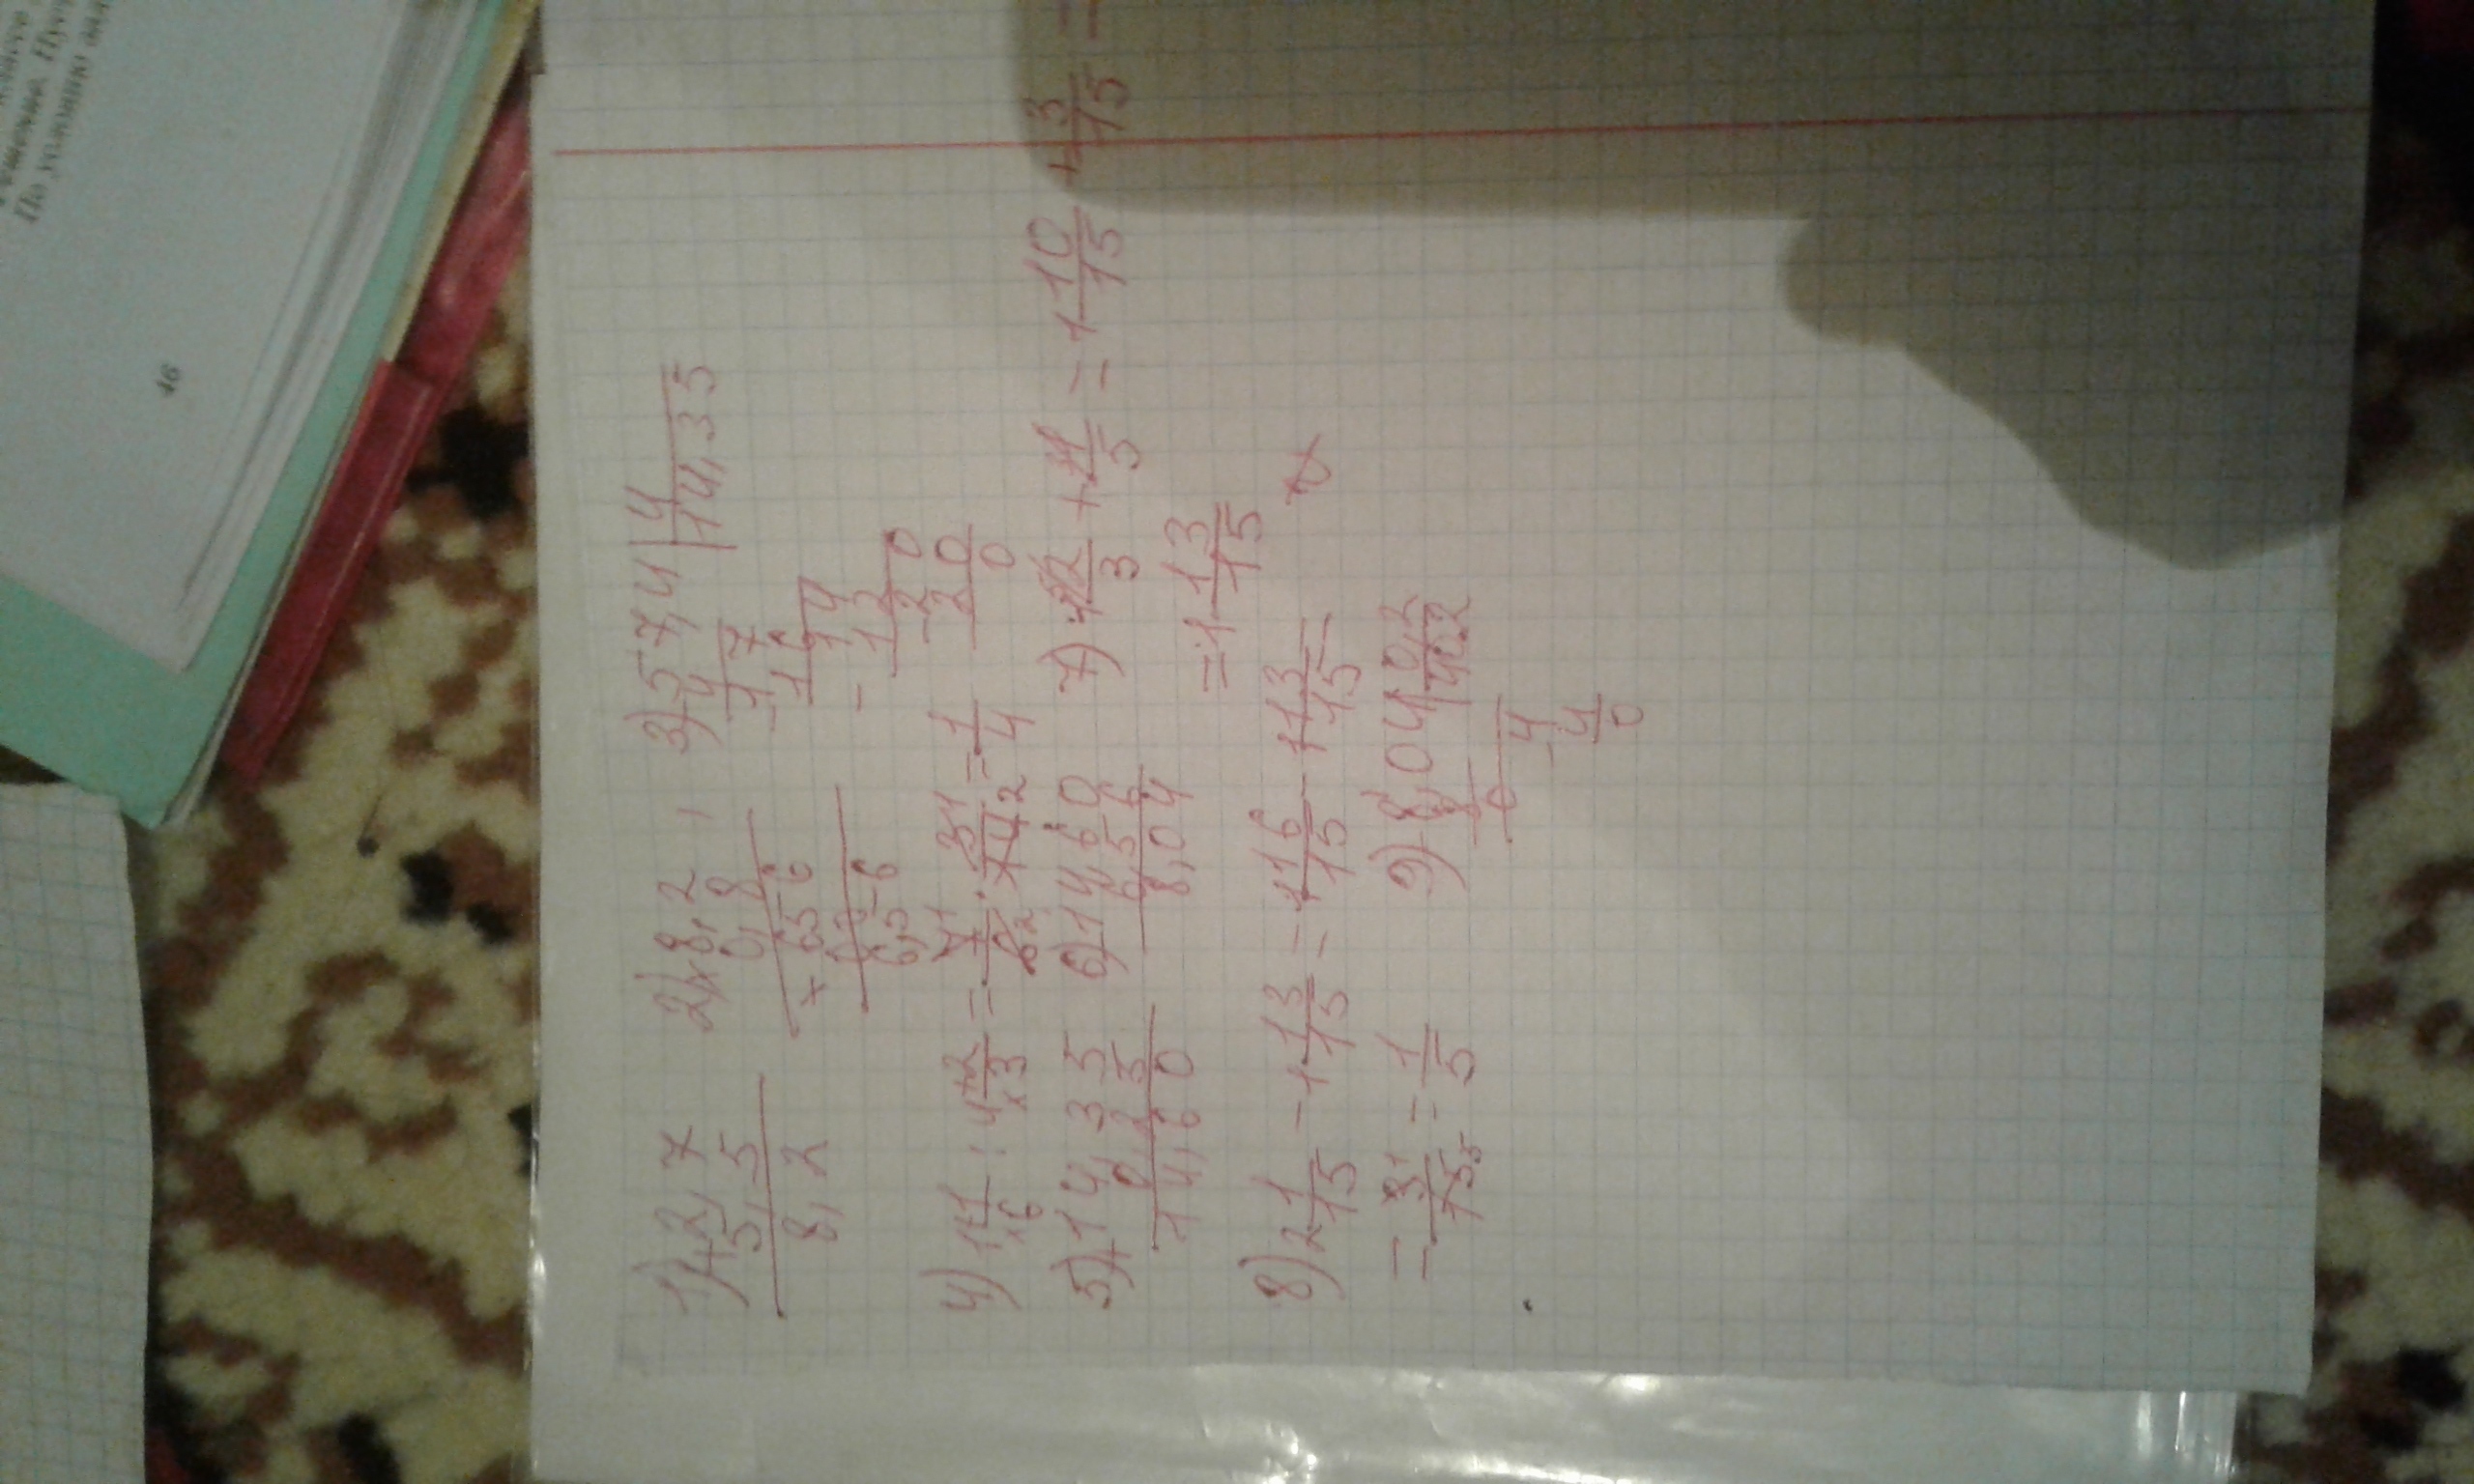 46
1) + 2,7
5,5
8,2
2) × 8,2
0,8
+ 656
6,56
3) 57,4 | 4
4 | 14,35
- 17
16
- 14
12
- 20
20
0
4) 1 1/6 : 4 2/3 = 7/6 · 3/14 = 1/4
5) + 14,35
0,25
14,60
6) 14,60
6,56
8,04
7) 1 2/3 + 1/5 = 1 10/15 + 3/15 =
= 1 13/15
8) 2 1/15 - 1 13/15 = 1 16/15 - 1 13/15 =
= 3/15 = 1/5
9) 8,04 | 0,2
8
0
- 4
4
0